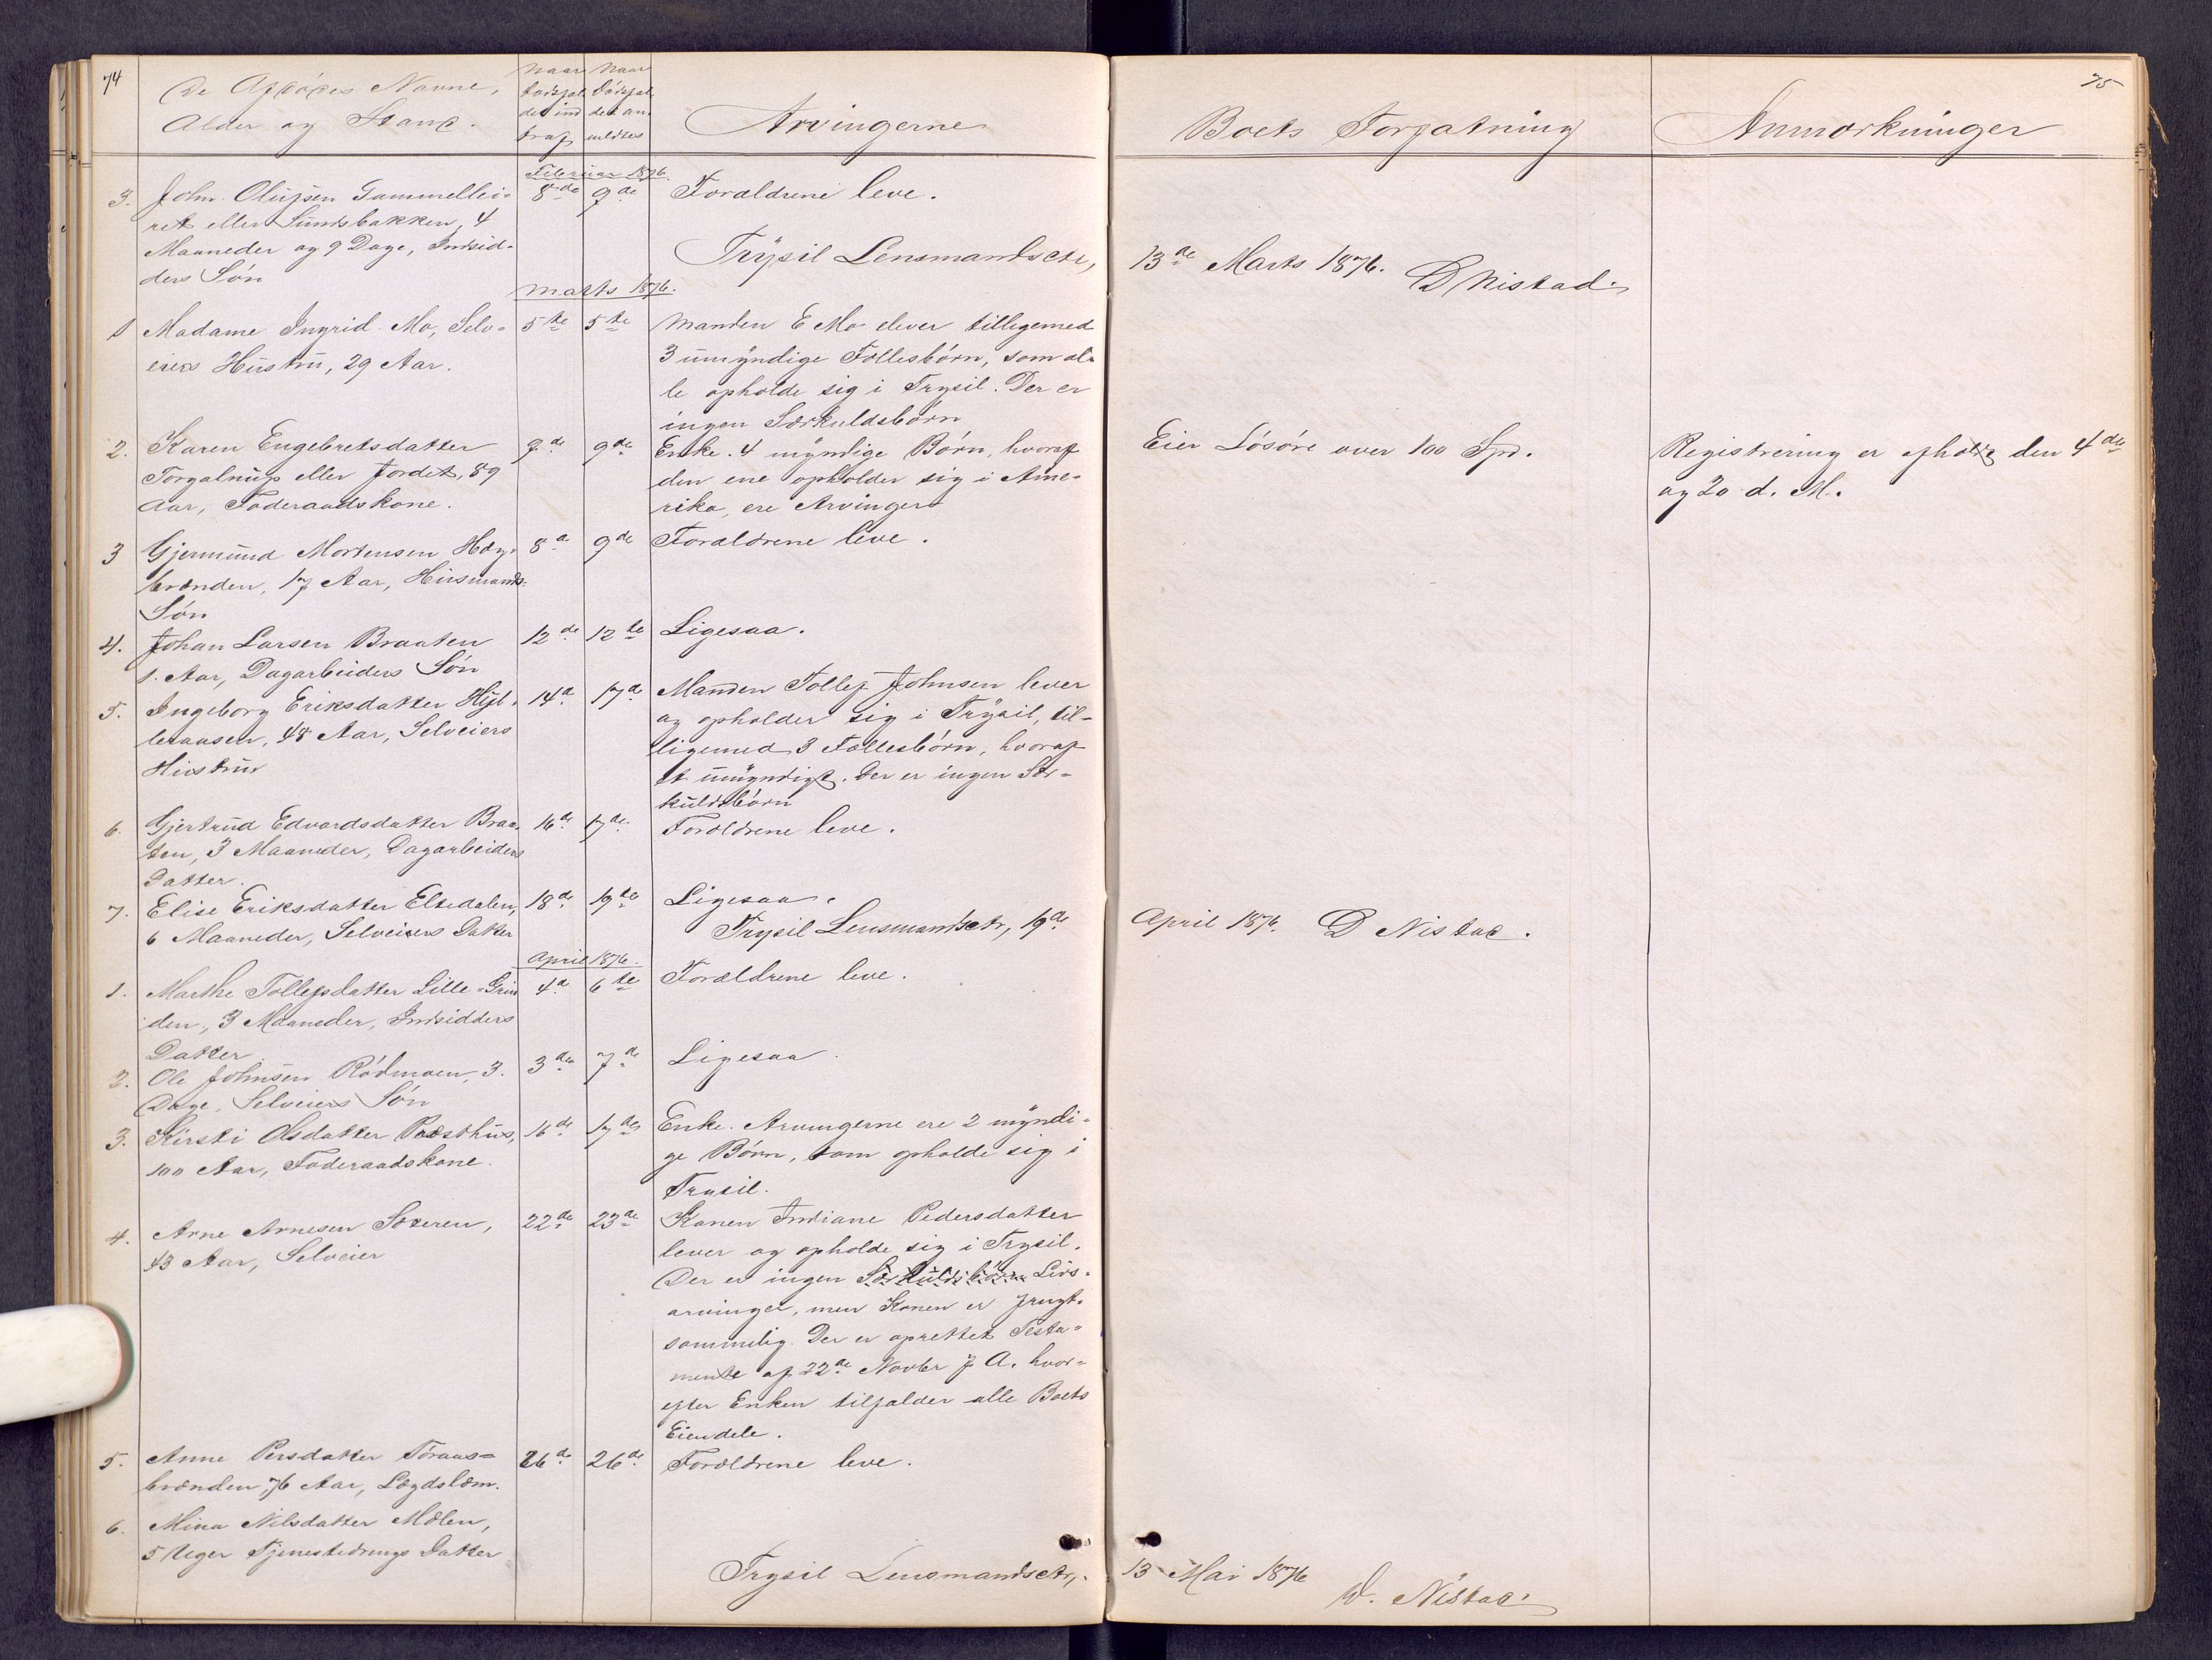 74
De Afdødes Navne,
Alder og Stand.
Naar
Dødsfal-
det ind
traf
Naar
Dødsfal-
det an-
meldtes
Arvingerne
Februar 1876.
3. John Olufsen Gammellei-
ret eller Sundsbakken, 4
Maaneder og 9 Dage, Indsid-
ders Søn
8de 9de Forældrene leve.
Trysil Lensmandsctr,
Marts 1876.
1 Madame Ingrid Mo, Selv-
eiers Hustru, 29 Aar.
5te 5te Manden E Mo elever tilligemed
3 umyndige Fællesbørn, som al-
le opholde sig i Trysil. Der er
ingen Særkuldsbørn
2. Karen Engebretsdatter
Torgalnup eller Jordet, 89
Aar, Føderaadskone.
7de 9de Enke. 4 myndige Børn, hvoraf
den ene opholder sig i Ame-
rika, ere Arvinger
3 Gjermund Mortensen Hæg-
brænden, 17 Aar, Husmands-
Søn
8de 9de Forældrene leve.
4. Johan Larsen Braaten
1. Aar, Dagarbeiders Søn
12de 12te Ligesaa.
5. Ingeborg Eriksdatter Hyl-
leraasen, 48 Aar, Selveiers
Hustru
14d 17d Manden Tollef Johnsen lever
og opholder sig i Trysil, til-
ligemed 3 Fællesbørn, hvoraf
et umyndigt. Der er ingen Sær-
kuldsbørn
6. Gjertrud Edvardsdatter Braa-
ten, 3 Maaneder, Dagarbeiders
Datter.
16de 17de Forældrene leve.
7. Elise Eriksdatter Eltedalen,
6 Maaneder, Selveiers Datter
18de 19de Ligesaa.
Trysil Lensmandsctr, 19de
April 1876.
1. Marthe Tollefsdatter Lille-Grin
den, 3 Maaneder, Indsidders
Datter
4d 6te Forældrene leve.
2. Ole Johnsen Rødmoen, 3.
Dage, Selveiers Søn
3de 7de Ligesaa.
3. Kirsti Olsdatter Præsthus,
100 Aar, Føderaadskone.
16de 17de Enke. Arvingerne ere 2 myndi-
ge Børn, som opholde sig i
Trysil.
4. Arne Arnesen Sæteren,
43 Aar, Selveier
22de 23de Konen Indiane Pedersdatter
lever og opholde sig i Trysil.
Der er ingen Særkuldsbørn Livs-
arvinger, men Konen er frugt-
sommelig. Der er oprettet Testa-
mente af 22de Novbr f A. hvor-
efter Enken tilfalder alle Boets
Eiendele.
5. Anne Persdatter Toraas-
brænden, 76 Aar, Lægdslem.
26de 26de Forældrene leve.
6. Mina Nilsdatter Mælen,
5 Uger Tjenestedrengs Datter
Trysil Lensmandsctr,
75
Boets Forfatning
Anmærkninger
13de Marts 1876. D Nistad.
Eier Løsøre over 100 Spd.
Registrering er afholdt den 4de
og 20 d. M.
April 1876. D Nistad.
13 Mai 1876
D. Nistad.